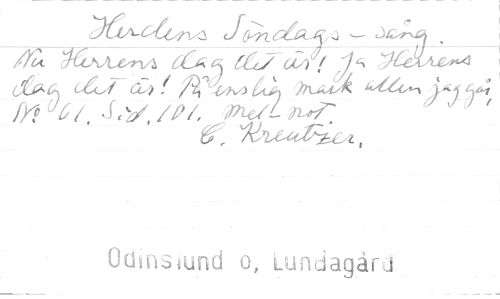 Herdens Söndags-sång.
Nu Herrens dag det är! Ja Herrens
dag det är! På enslig mark allen jag går,
No 61. Sid. 101. mel-not.
C. Kreutzer.
Odinslund o, Lundagård